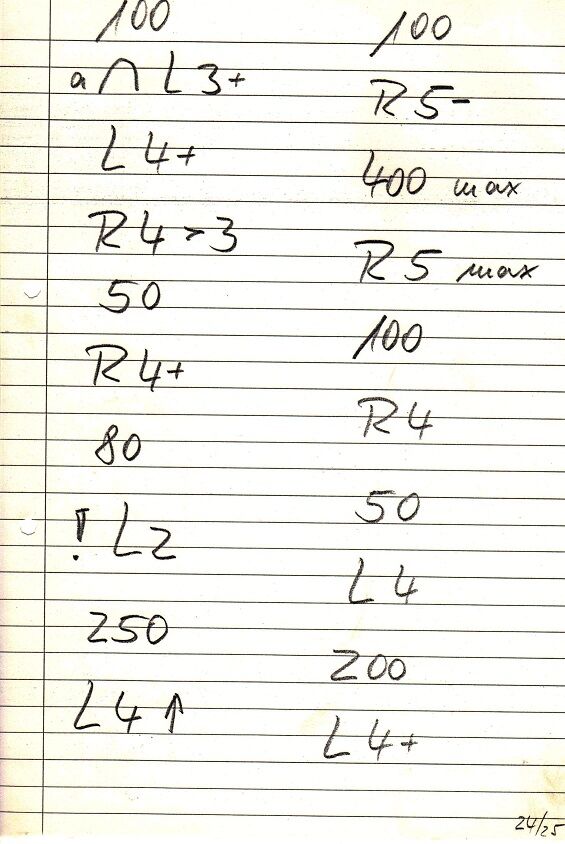 100
a ∩ L 3+
L 4+
R 4 > 3
50
R 4+
80
! L 2
250
L 4 ↑
100
R 5-
400 max
R 5 max
100
R 4
50
L 4
200
L 4+
24/25